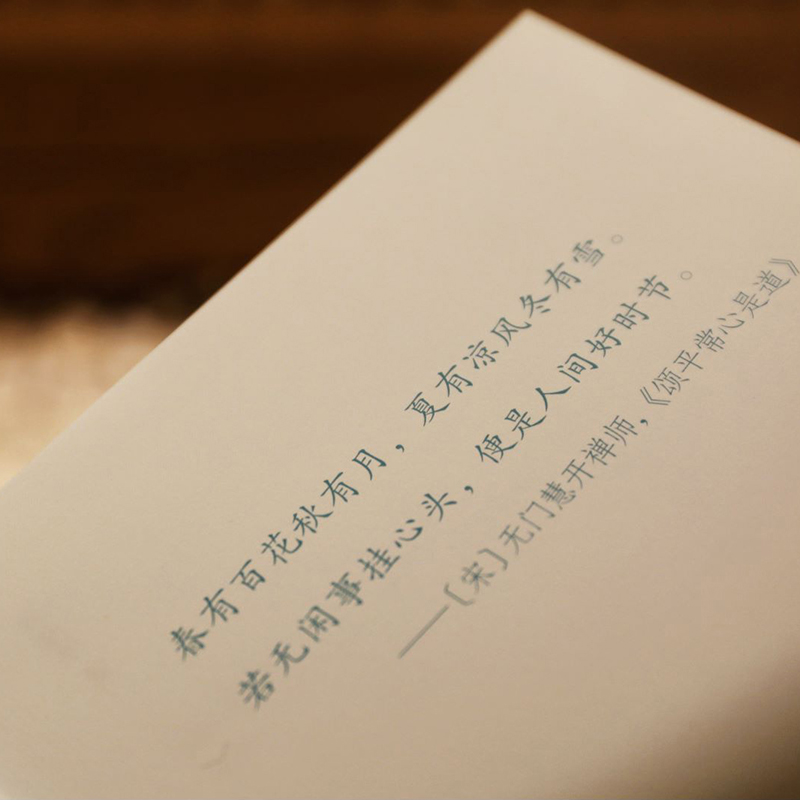 春有百花秋有月，夏有凉风冬有雪。
若无闲事挂心头，便是人间好时节。
——［宋］无门慧开禅师，《颂平常心是道》